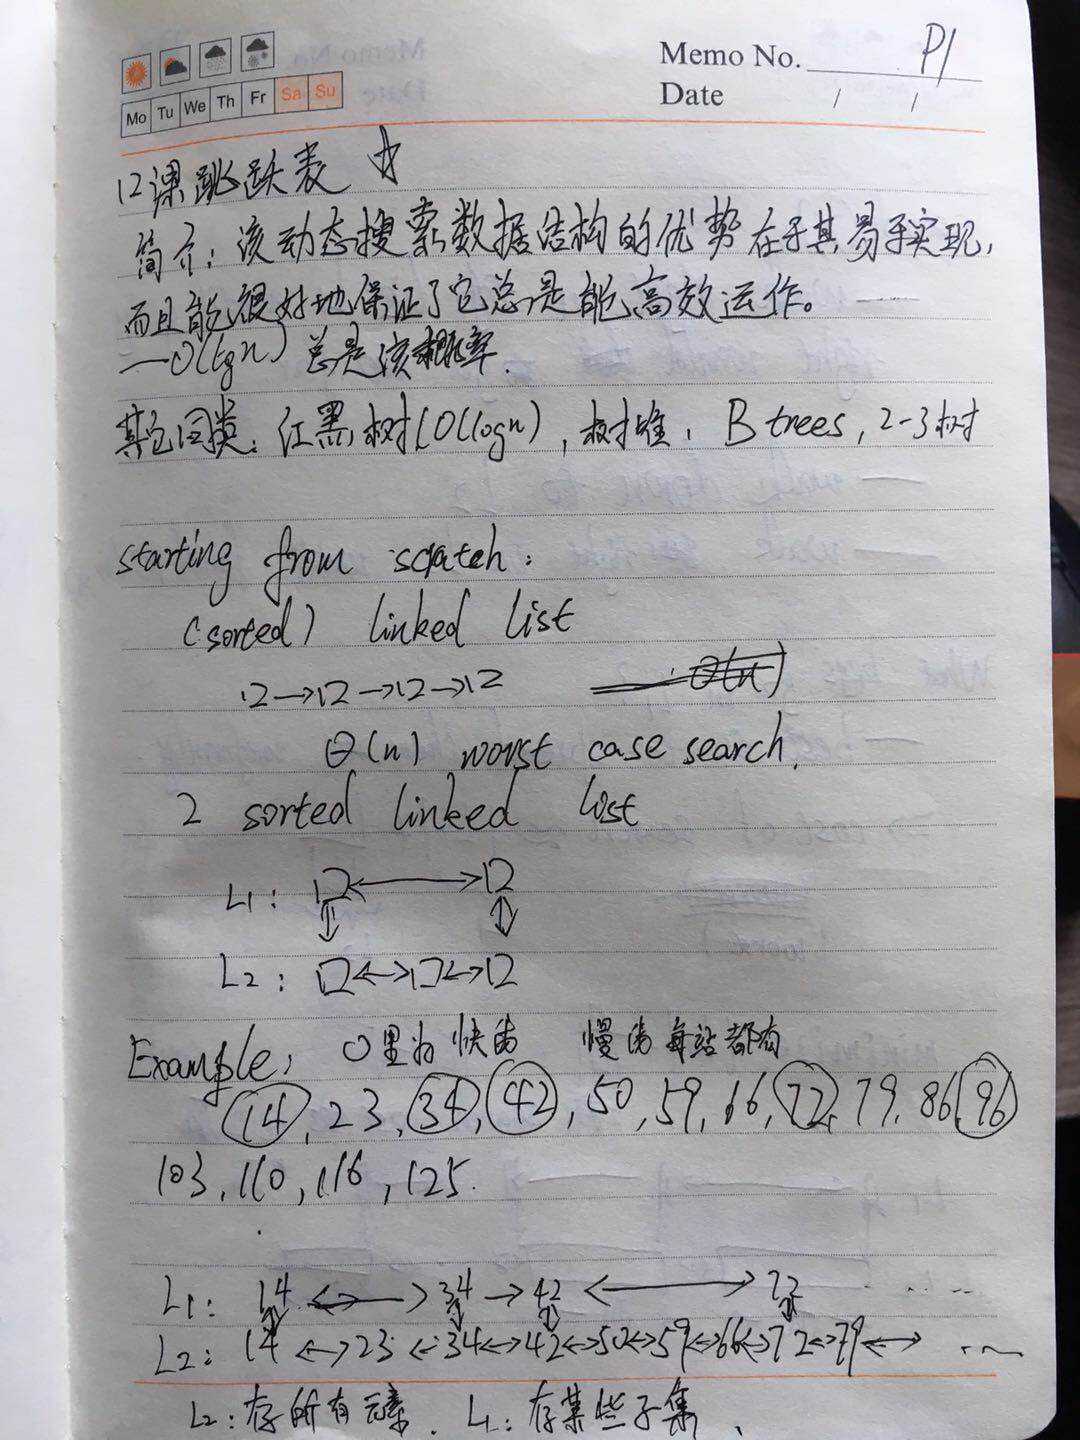 Memo No. P1
Mo Tu We Th Fr Sa Su
Date / /
12课 跳跃表 ☆
简介：该动态搜索数据结构的优势在于其易于实现，
而且能很好地保证了它总是能高效运作。
—O(lgn) 总是该概率.
其它同类：红黑树(O(logn), 树堆, B trees, 2-3树
starting from scratch:
(sorted) linked list
□→□→□→□
Θ(n) worst case search.
2 sorted linked list
L1: □↔□
L2: □↔□↔□
Example: O里为快的 慢的每站都有
14, 23, 34, 42, 50, 59, 66, 72, 79, 86, 96
103, 110, 116, 125.
L1: 14 ↔ 34 → 42 ↔ 72 ....
L2: 14 ↔ 23 ↔ 34 ↔ 42 ↔ 50 ↔ 59 ↔ 66 ↔ 72 ↔ 79 ↔ ...
L2: 存所有元素. L1: 存某些子集.